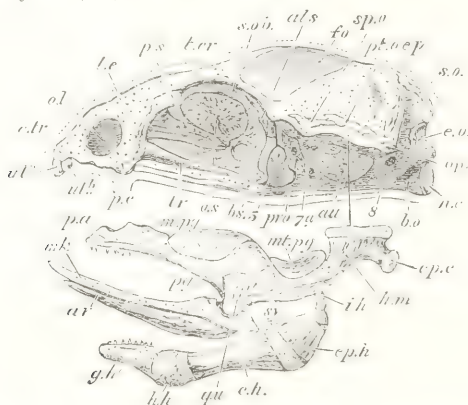 s.o.b. al.s fo sp.o
p.s t.cr pt.o ep
t.e s.o.
o.l
c.tr e.o.
op.
u.l u.l.² p.e n.c
t.r o.s b.s. 5 pro 7a au 8 b.o
p.a m.pg mt.pg
m.k. ep.c
pg h.m
ar i.h
sy
ep.h
g.h
h.h qu c.h.